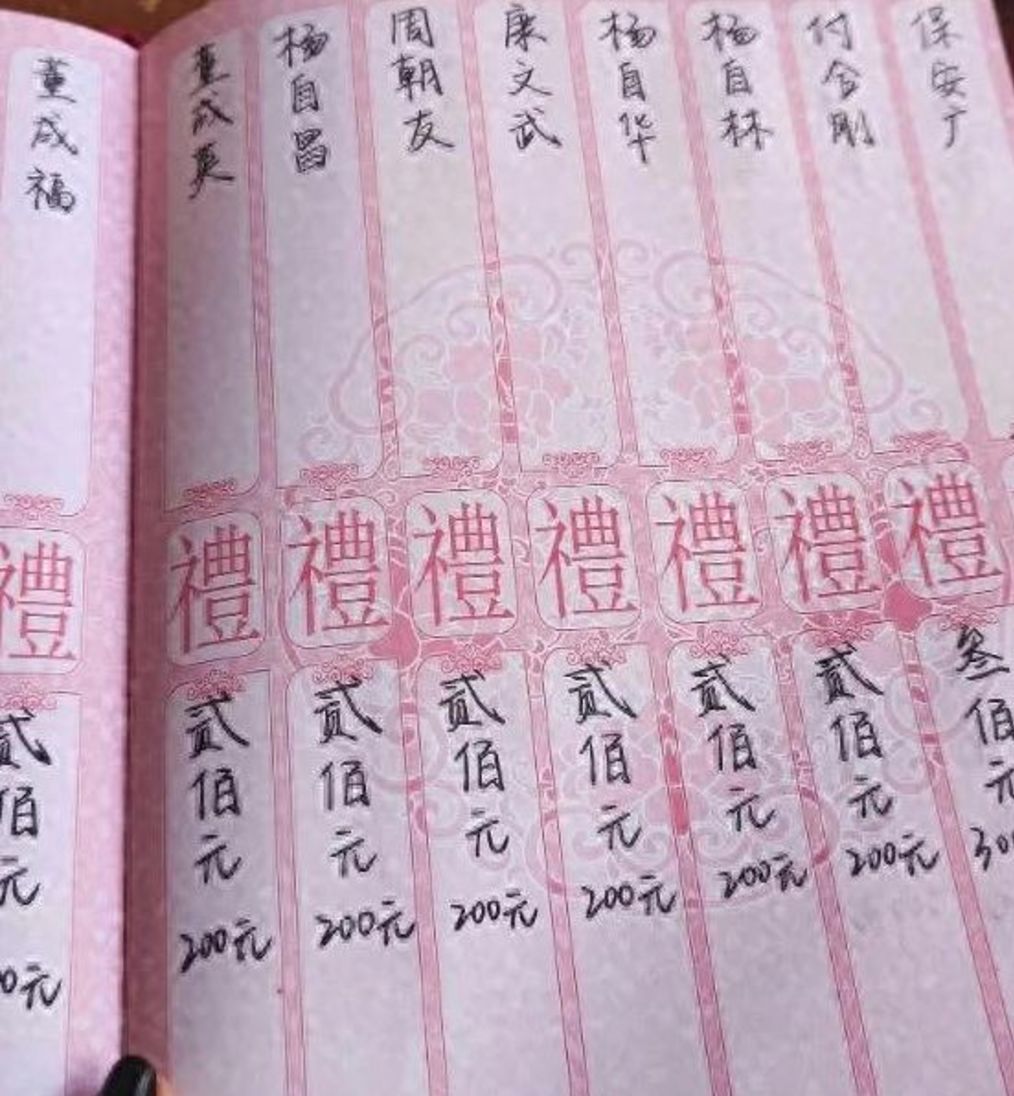 董成福
禮
贰佰元
0元
董成英
禮
贰佰元
200元
杨自昌
禮
贰佰元
200元
周朝友
禮
贰佰元
200元
康文武
禮
贰佰元
200元
杨自华
禮
贰佰元
200元
杨自林
禮
贰佰元
200元
付合刚
禮
叁佰元
300
保安